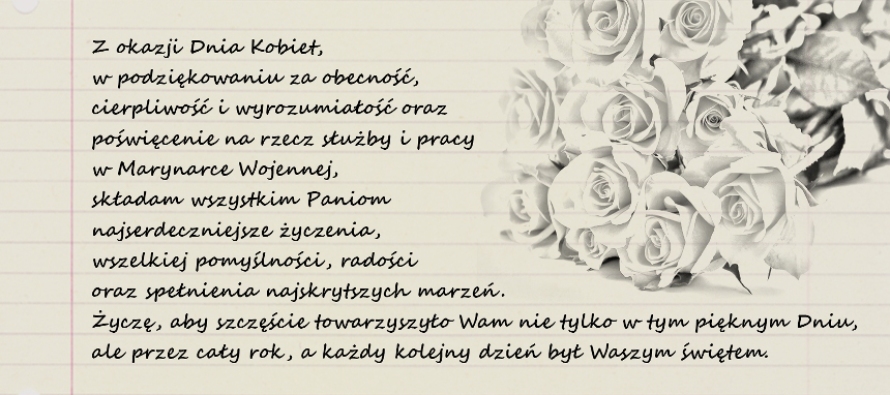 Z okazji Dnia Kobiet,
w podziękowaniu za obecność,
cierpliwość i wyrozumiałość oraz
poświęcenie na rzecz służby i pracy
w Marynarce Wojennej,
składam wszystkim Paniom
najserdeczniejsze życzenia,
wszelkiej pomyślności, radości
oraz spełnienia najskrytszych marzeń.
Życzę, aby szczęście towarzyszyło Wam nie tylko w tym pięknym Dniu,
ale przez cały rok, a każdy kolejny dzień był Waszym świętem.